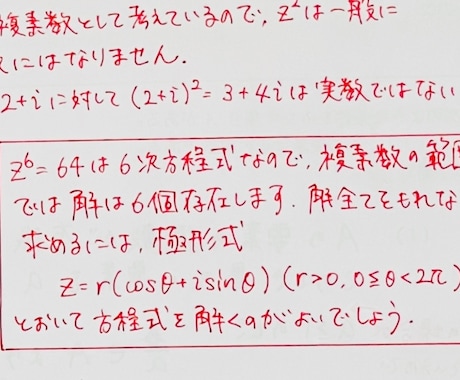 複素数として考えているので, z²は一般に
にはなりません.
2+iに対して (2+i)² = 3+4i は実数ではない
z⁶=64は6次方程式なので, 複素数の範囲
では解は6個存在します. 解全てをもれな
求めるには, 極形式
z=r(cosθ+isinθ) (r>0, 0≦θ<2π)
とおいて方程式を解くのがよいでしょう.